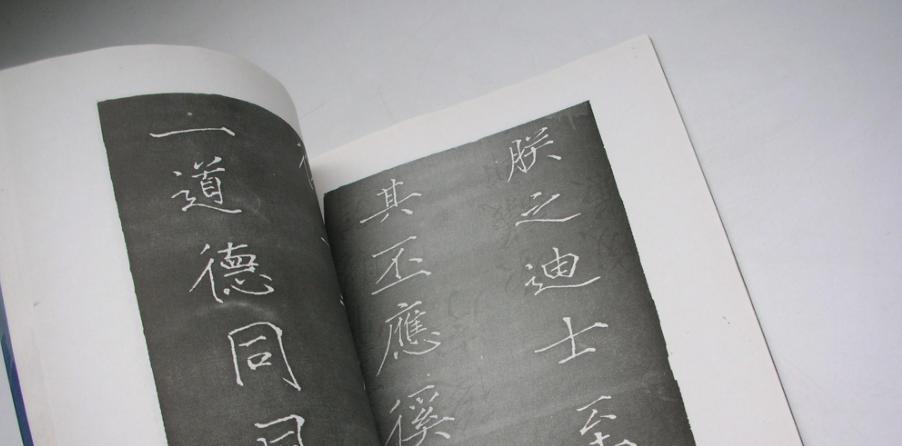 朕之迪士
其丕應徯
一道德同